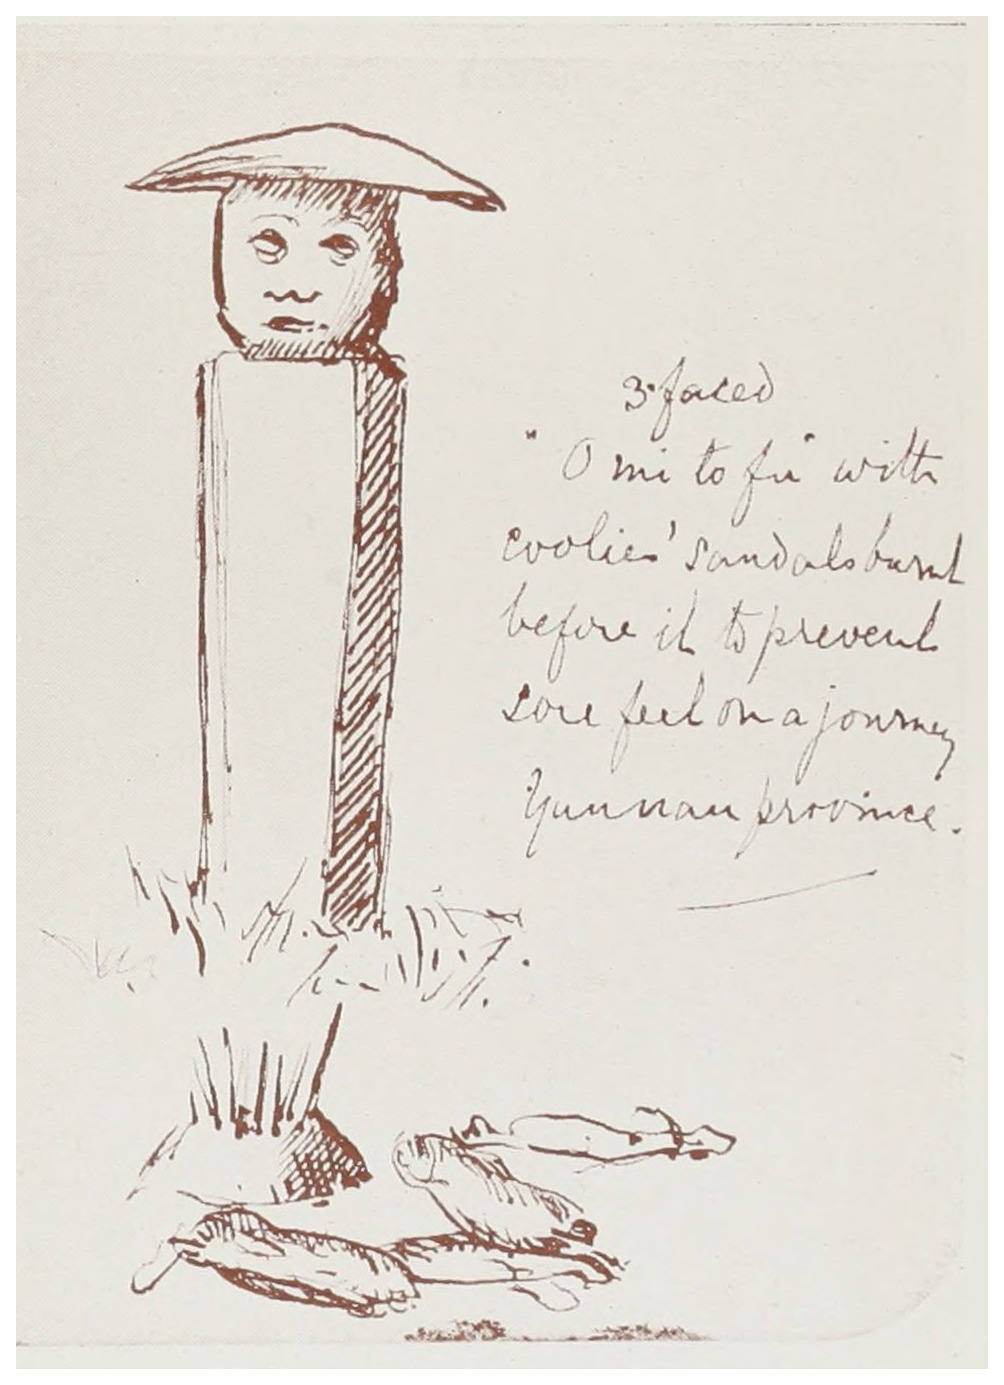 3-faced
"O mi to fu" with
coolies' sandals burnt
before it to prevent
sore feet on a journey
Yunnan province.